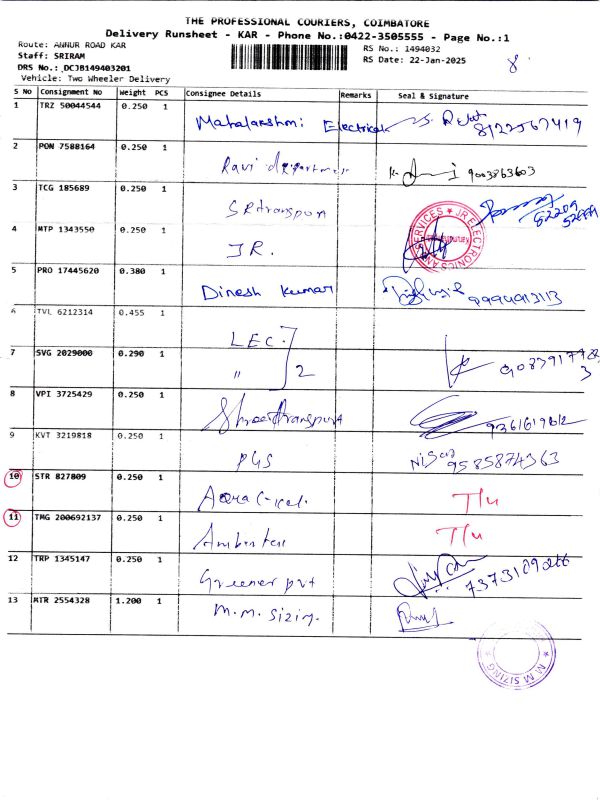 THE PROFESSIONAL COURIERS, COIMBATORE
Delivery Runsheet - KAR - Phone No.:0422-3505555 - Page No.:1
Route: ANNUR ROAD KAR
RS No.: 1494032
Staff: SRIRAM
RS Date: 22-Jan-2025
8
DRS No.: DCJB149403201
Vehicle: Two Wheeler Delivery
S No Consignment No Weight PCS Consignee Details Remarks Seal & Signature
1 TRZ 50044544 0.250 1 Mahalakshmi Electricals 8122567419
2 PON 7588164 0.250 1 Ravi department 9003863603
3 TCG 185689 0.250 1 SR transport
4 MTP 1343550 0.250 1 JR. SERVICES * JR ELECTRONICS AND
5 PRO 17445620 0.380 1 Dinesh Kumar 9994913113
6 TVL 6212314 0.455 1 LEC.
7 SVG 2029000 0.290 1 " 2
8 VPI 3725429 0.250 1 Shree transport
9 KVT 3219818 0.250 1 PGS 9585874363
10 STR 827809 0.250 1
11 TMG 200692137 0.250 1
12 TRP 1345147 0.250 1 Greener pvt
13 MTR 2554328 1.200 1 M.M. Sizing.
* M M SIZING *